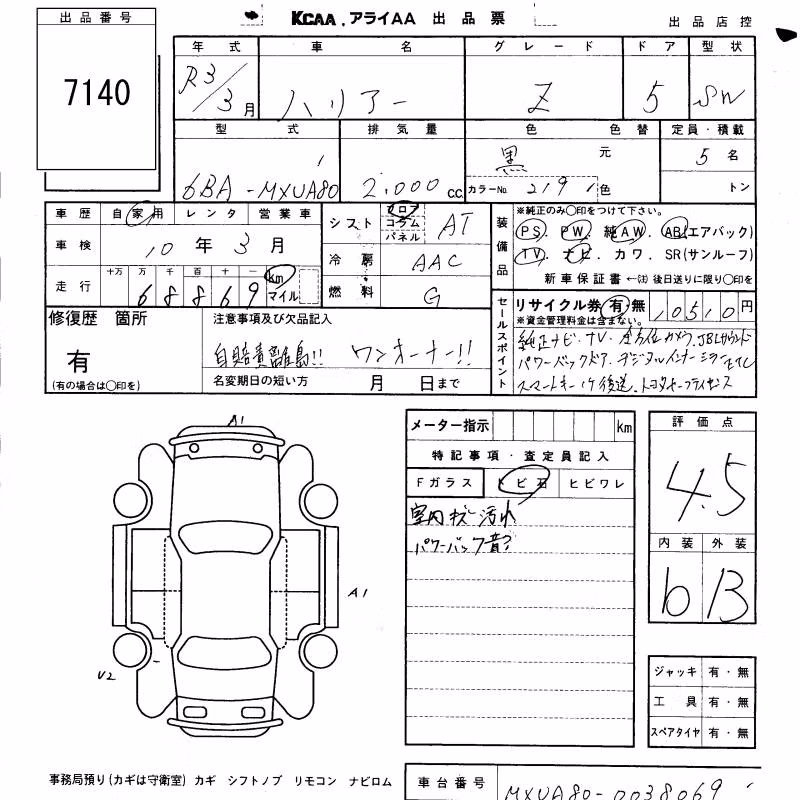 出品番号
7140
KCAA.アライAA 出品票
出品店控
年式 車名 グレード ドア 型状
R3/3月 ハリアー Z 5 SW
型式 排気量 色 色替 定員・積載
6BA-MXUA80 2.000cc 黒 元 5名
カラーNo. 219 色 トン
車歴 自家用 レンタ 営業車
車検 10年3月
走行 十万 万 千 百 十 一
68869 km マイル
シフト フロア コラム パネル AT
冷房 AAC
燃料 G
装備品
※純正のみ〇印をつけて下さい。
PS. PW. 純AW. AB(エアバック)
TV. ナビ. カワ. SR(サンルーフ)
新車保証書←(注)後日送りに限り〇印を
セールスポイント
リサイクル券 有・無 10510円
※資金管理料金は含まない。
純正ナビ.TV.全方位カメラ.JBLサウンド
パワーバックドア.デジタルインナーミラー.ETC
スマートキー1ケ後送.トヨタセーフティセンス
修復歴 箇所
有
(有の場合は〇印を)
注意事項及び欠品記入
自賠責離島!! ワンオーナー!!
名変期日の短い方 月 日まで
A1
A1
V2
メーター指示 km
特記事項・査定員記入
Fガラス トビ石 ヒビワレ
室内キズ汚れ
パワーバック音?
評価点
4.5
内装 外装
b B
ジャッキ 有・無
工具 有・無
スペアタイヤ 有・無
事務局預り(カギは守衛室) カギ シフトノブ リモコン ナビロム
車台番号 MXUA80-0038069